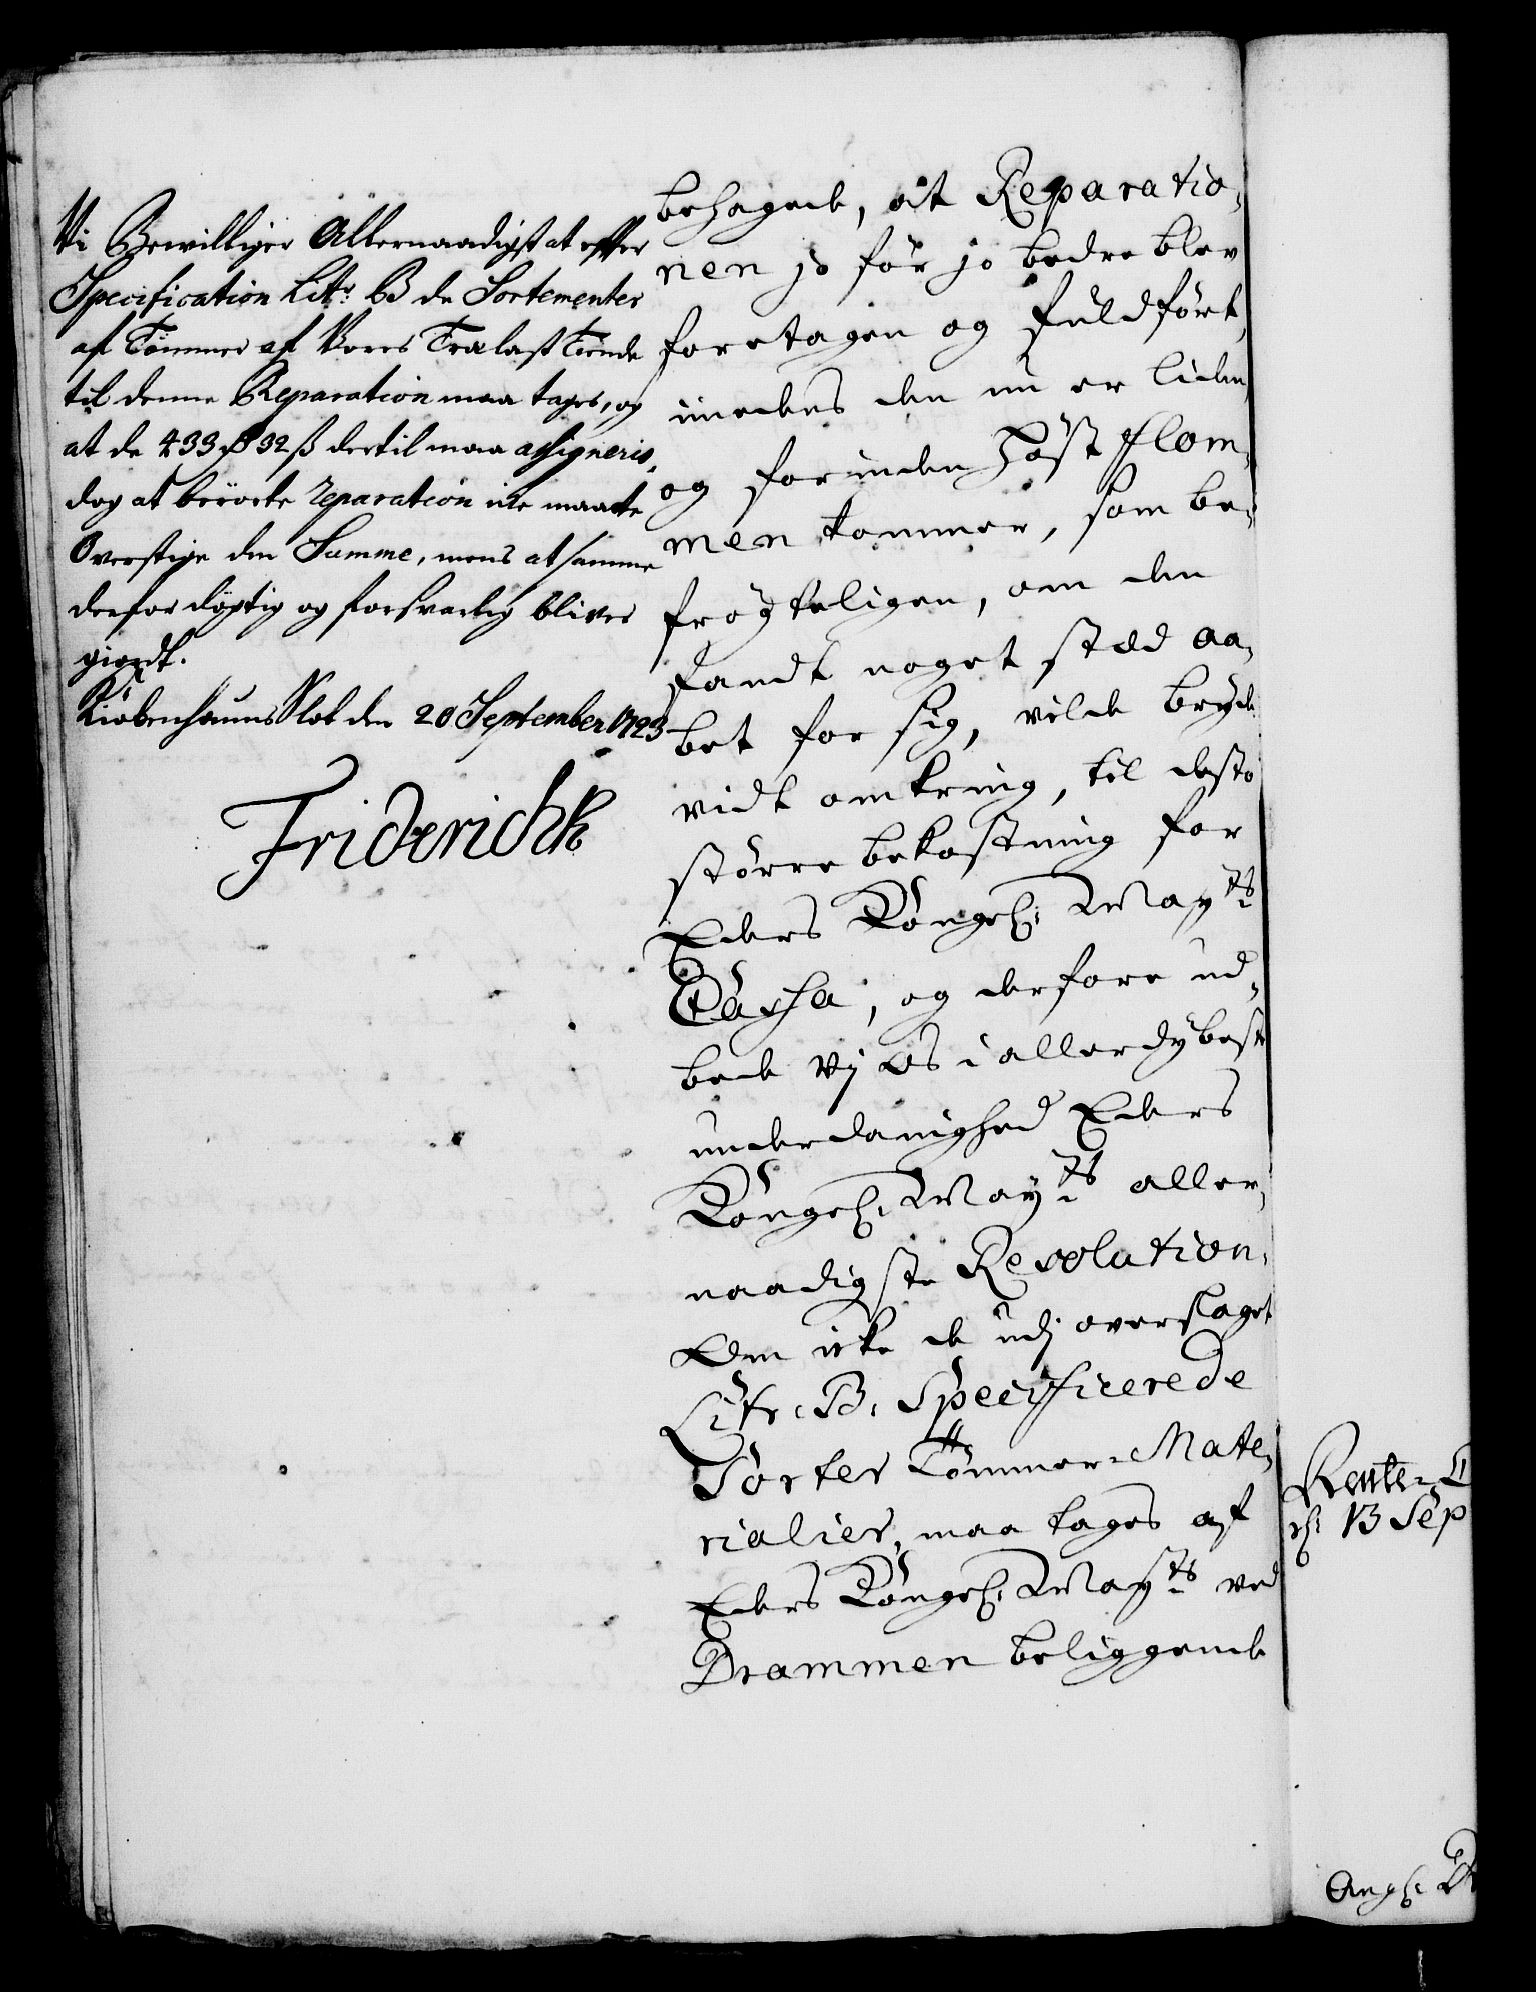 Vi Bewilliger Allernaadigst at efter
Specification Litr. B de Sortementer
af Tømmer af Vores Tralast Tiende
til denne Reparation maa tages, og
at de 433 rdr 32 ß dertil maa assigneris,
dog at berörte reparation icke maatte
Overstige den Summe, mens at samme
derfor dygtig og forsvarlig bliver
giordt.
Kiøbenhauns Slot den 20 September 1723
Friderich R
behagede, at Reparatio-
nen jo för jo bedre blev
foretagen og fuldfört,
imedens den nu er liden,
og forinden Höst Flom-
men kommer, som be-
frögteligen, om den
fandt noget stæd aa-
bet for sig, vilde bryde
vidt omkring, til desto
större bekostning for
Eders Kongel: Mayts
Cassa, og derfore ud-
bede Vj Os i allerdybeste
underdanighed Eders
Kongel: Mayts aller-
naadigste Resolution,
Om icke de udj overslaget
Litr: B: Specificerede
Sorter Tömmer-Mate-
rialier, maa tages af
Eders Kongel: Mayts ved
Drammen beliggende
Rente-
13 Sep